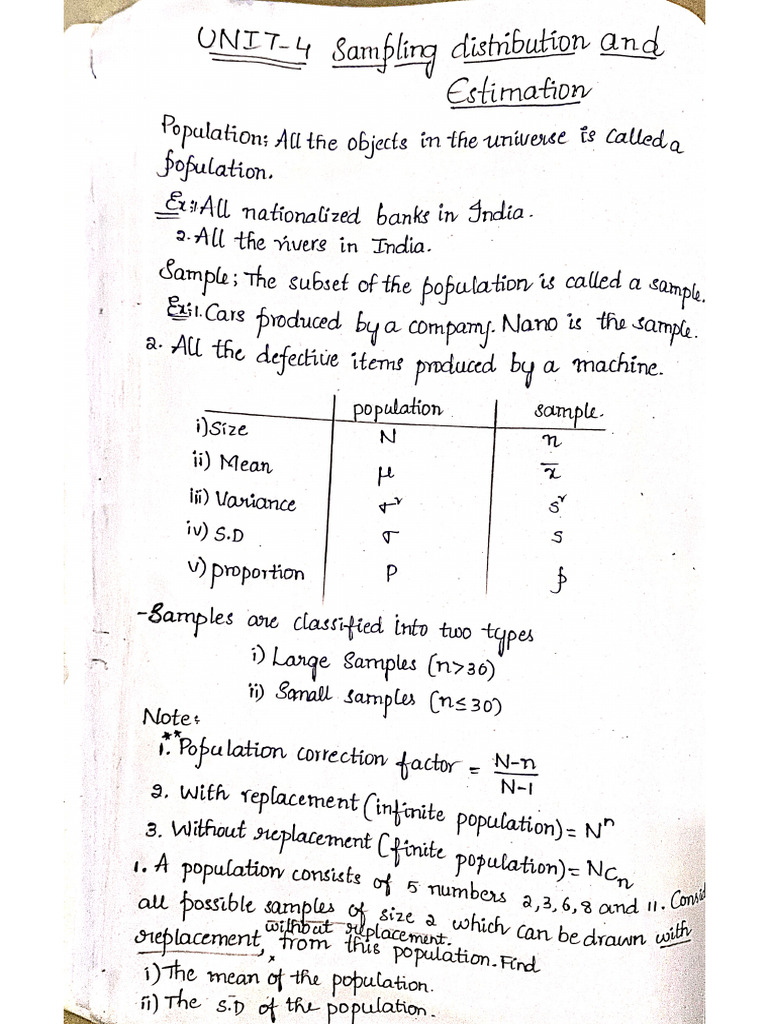 UNIT-4 Sampling distribution and
Estimation
Population: All the objects in the universe is called a
population.
Ex: 1 All nationalized banks in India.
2. All the rivers in India.
Sample; The subset of the population is called a sample.
Ex: 1. Cars produced by a company. Nano is the sample.
2. All the defective items produced by a machine.
population sample.
i) Size N n
ii) Mean μ x̄
iii) Variance σ² s²
iv) S.D σ s
v) proportion P p
-Samples are classified into two types
i) Large Samples (n>30)
ii) Small samples (n≤30)
Note:
1.** Population correction factor = N-n / N-1
2. With replacement (infinite population) = Nⁿ
3. Without replacement (finite population) = NCₙ
1. A population consists of 5 numbers 2,3,6,8 and 11. Consid
all possible samples of size 2 which can be drawn with
without replacement.
replacement, from this population. Find
i) The mean of the population.
ii) The S.D of the population.